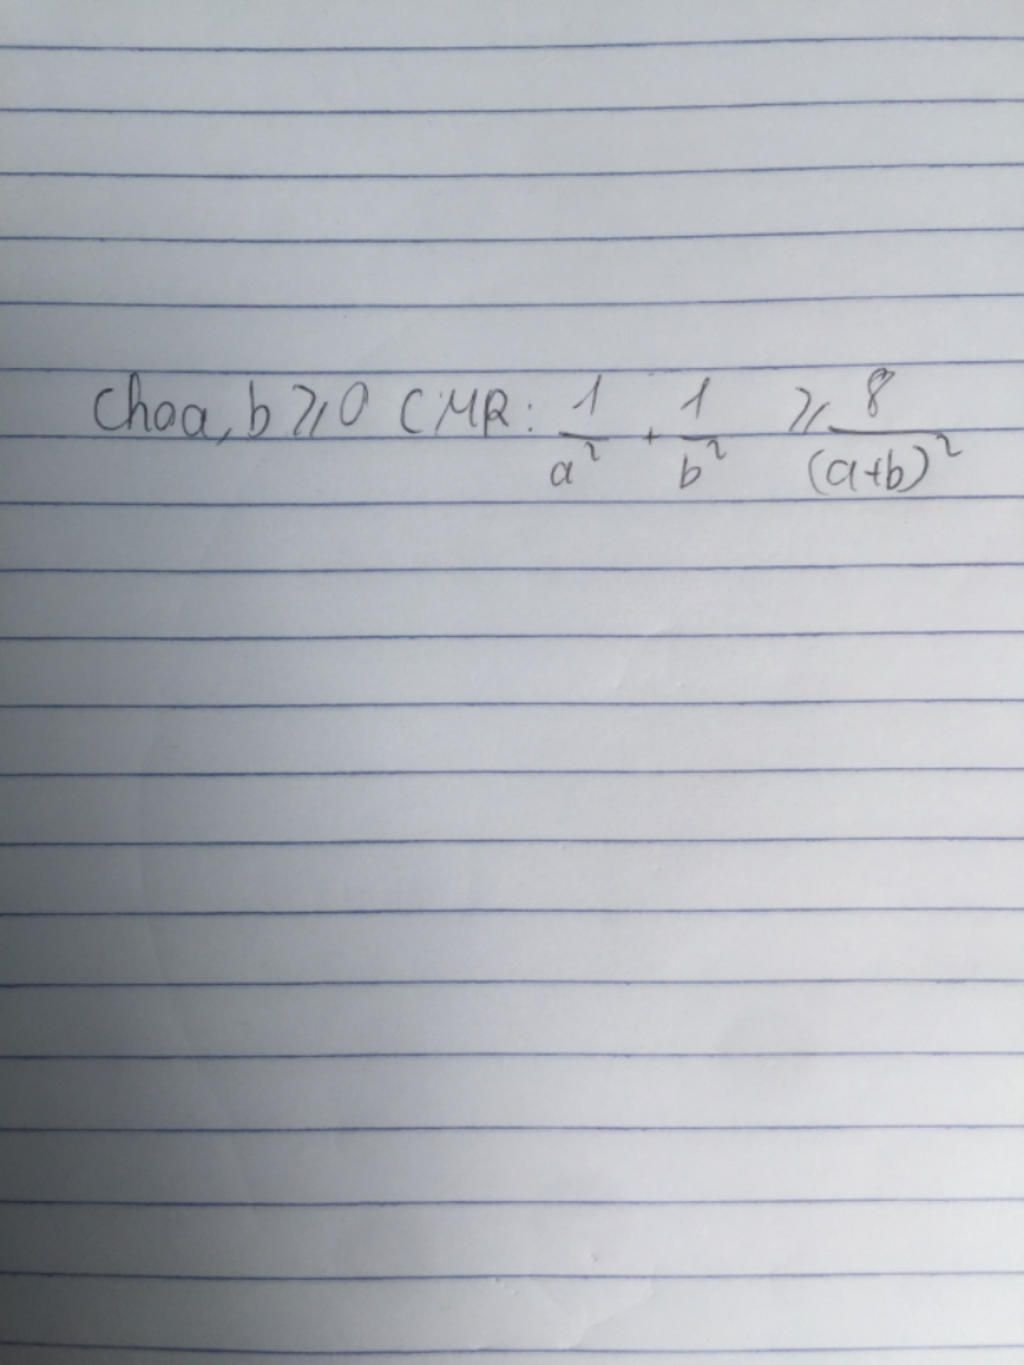 Cho a, b ⩾ 0 CMR: 1/a² + 1/b² ⩾ 8/(a+b)²